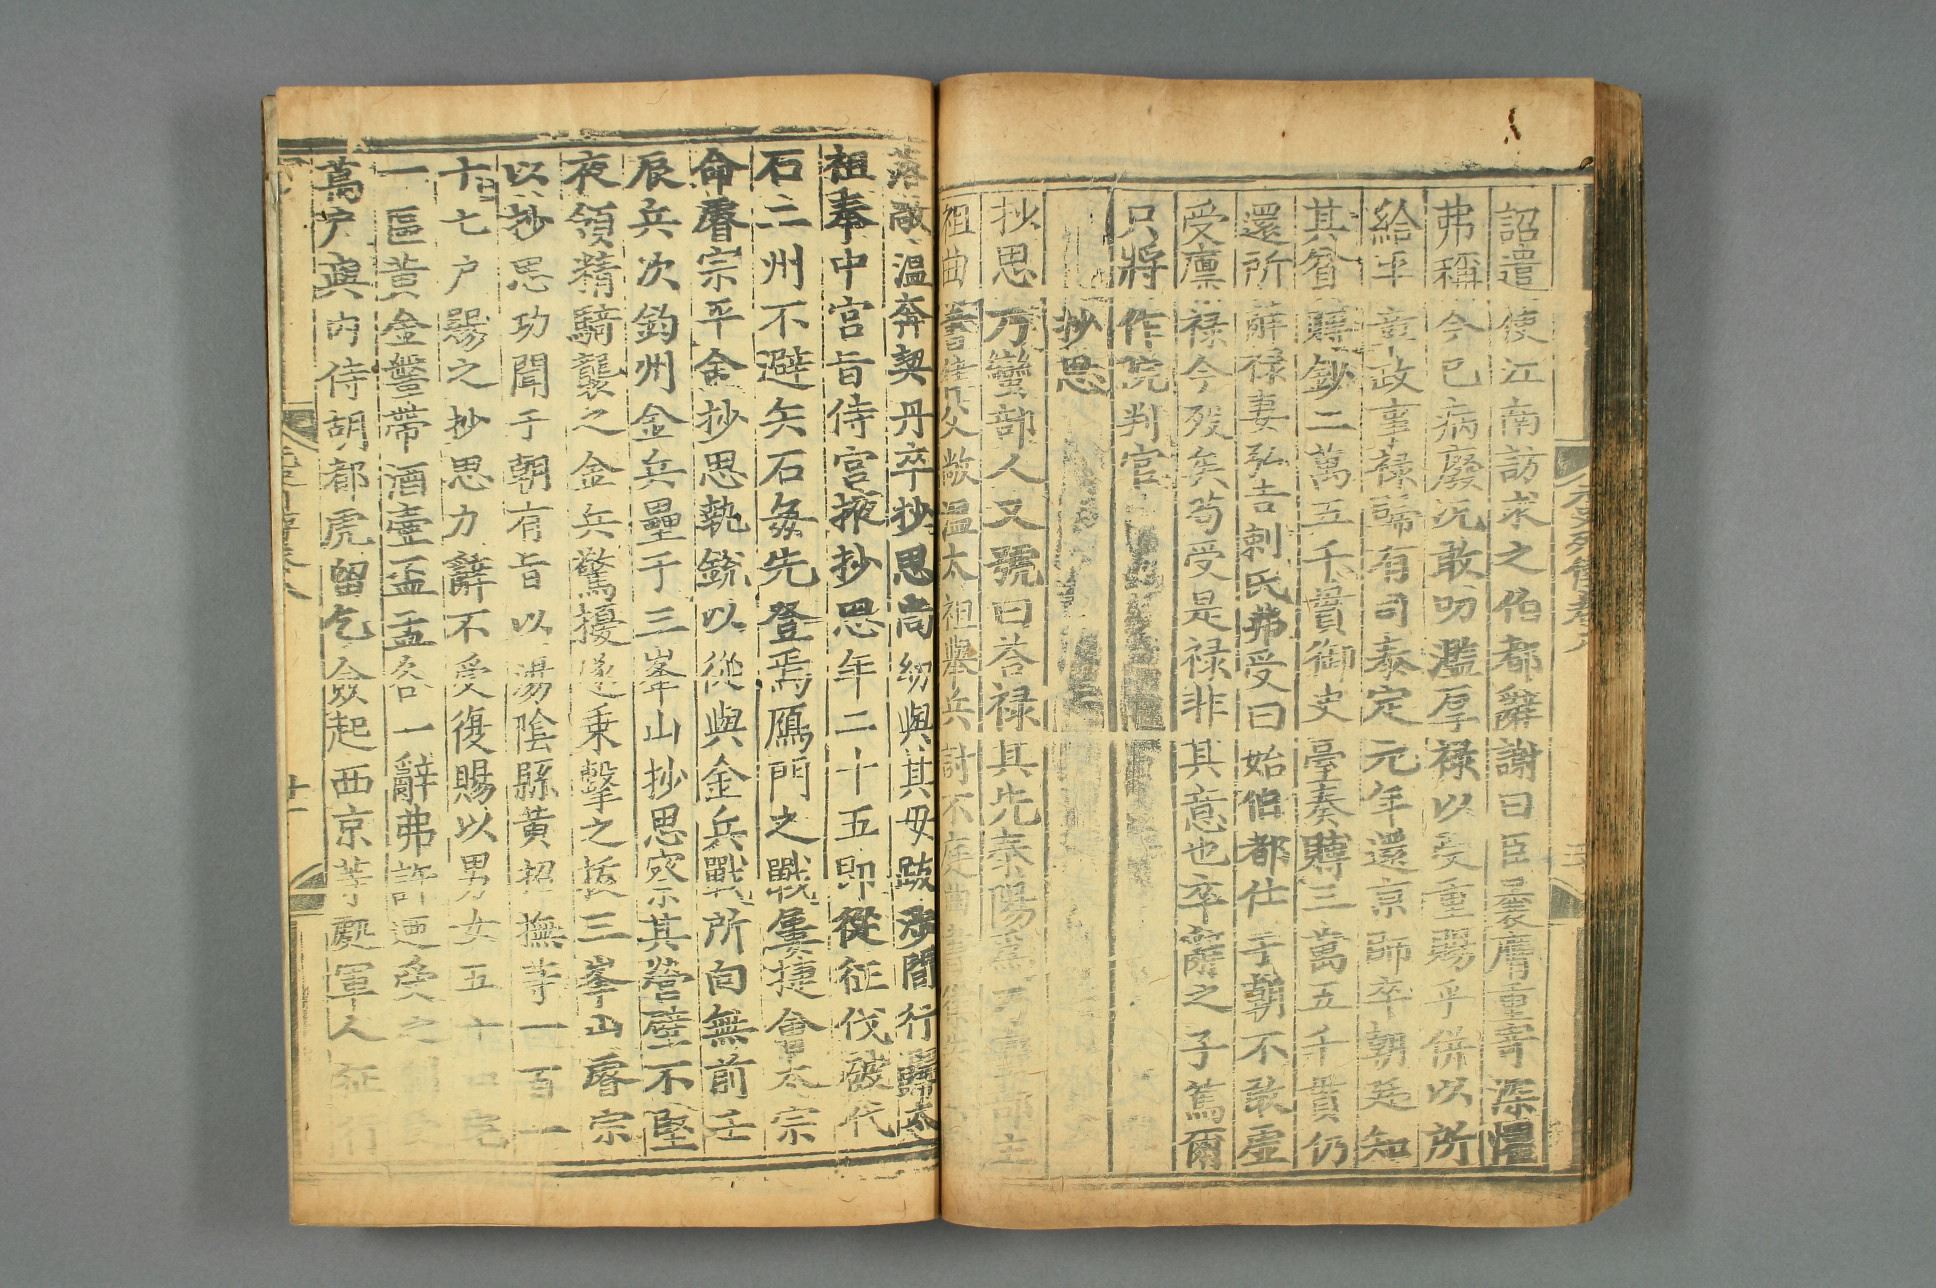 詔遣使江南訪求之伯都辭謝曰臣曩膺重寄深懼
弗稱今已病廢况敢叨濫厚禄以受重賜乎併以所
給平章政事禄歸有司泰定元年還京師卒朝廷知
其貧賻鈔二萬五千貫御史臺奏賻三萬五千貫仍
還所辭禄妻弘吉剌氏弗受曰始伯都仕于朝不敢虚
受廩禄今殁矣苟受是禄非其意也卒辭之子篤爾
只將作院判官
抄思
抄思乃蠻部人又號曰答禄其先泰陽爲乃蠻部主
祖曲書律父敞温太祖舉兵討不庭曲書律失
落敞温奔契丹卒抄思尚幼與其母跋涉間行歸太
祖奉中宮旨侍宮掖抄思年二十五即從征伐破代
石二州不避矢石每先登焉鴈門之戰屢捷會太宗
命睿宗平金抄思執銳以從與金兵戰所向無前壬
辰兵次鈞州金兵壘于三峯山抄思察其營壁不堅
夜領精騎襲之金兵驚擾遂乘擊之拔三峯山睿宗
以抄思功聞于朝有旨以湯陰縣黄招撫等一百一
十七户賜之抄思力辭不受復賜以男女五十口宅
一區黄金鞶帶酒壺盃盂各一辭弗許迺受之
萬户與内侍胡都虎留乞僉起西京等處軍人征行
元史列傳卷八
十一